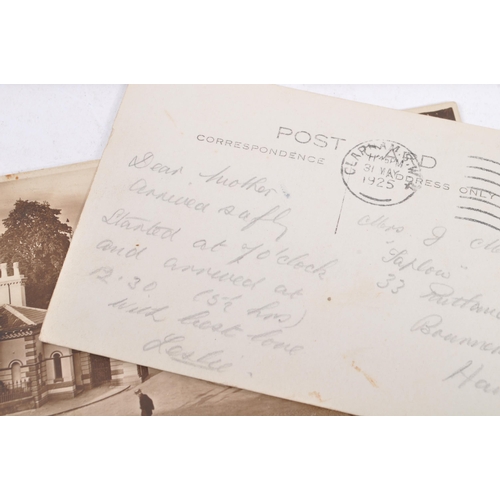 POST CARD
CORRESPONDENCE
ADDRESS ONLY
CLAPHAM
31 MAY
1925
Dear Mother.
arrived safly
Started at 7 O'clock
and arrived at
12.30 (5½ hrs)
with best love
Leslie
Mrs. J
"Taplow"
33